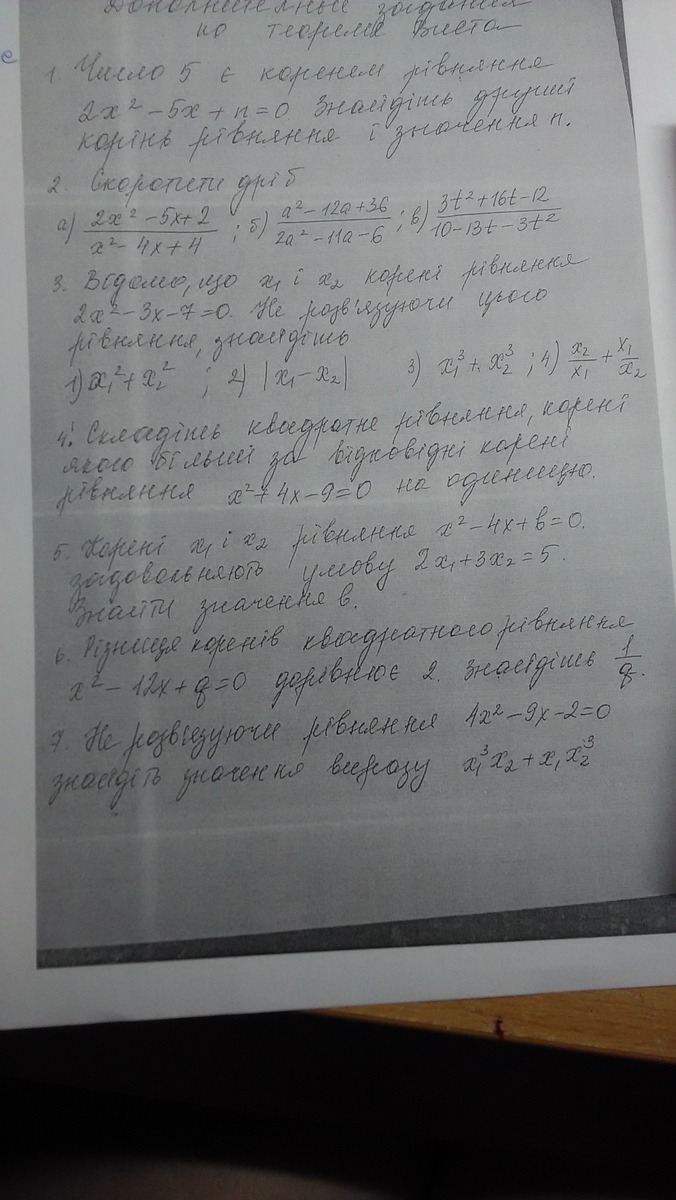 Дополнительные задания
по теореме Виета
1. Число 5 є коренем рівняння
2x² – 5x + n = 0. Знайдіть другий
корінь рівняння і значення n.
2. Скоротити дріб
а) (2x² – 5x + 2)/(x² – 4x + 4) ; б) (a² – 12a + 36)/(2a² – 11a – 6) ; в) (3t² + 16t – 12)/(10 – 13t – 3t²)
3. Відомо, що x₁ і x₂ корені рівняння
2x² – 3x – 7 = 0. Не розв'язуючи цього
рівняння, знайдіть
1) x₁² + x₂² ; 2) |x₁ – x₂| 3) x₁³ + x₂³ ; 4) x₂/x₁ + x₁/x₂
4. Складіть квадратне рівняння, корені
якого більші за відповідні корені
рівняння x² + 4x – 9 = 0 на одиницю.
5. Корені x₁ і x₂ рівняння x² – 4x + в = 0.
задовольняють умову 2x₁ + 3x₂ = 5.
Знайти значення в.
6. Різниця коренів квадратного рівняння
x² – 12x + q = 0 дорівнює 2. Знайдіть 1/q.
7. Не розв'язуючи рівняння 4x² – 9x – 2 = 0
знайдіть значення виразу x₁³x₂ + x₁x₂³